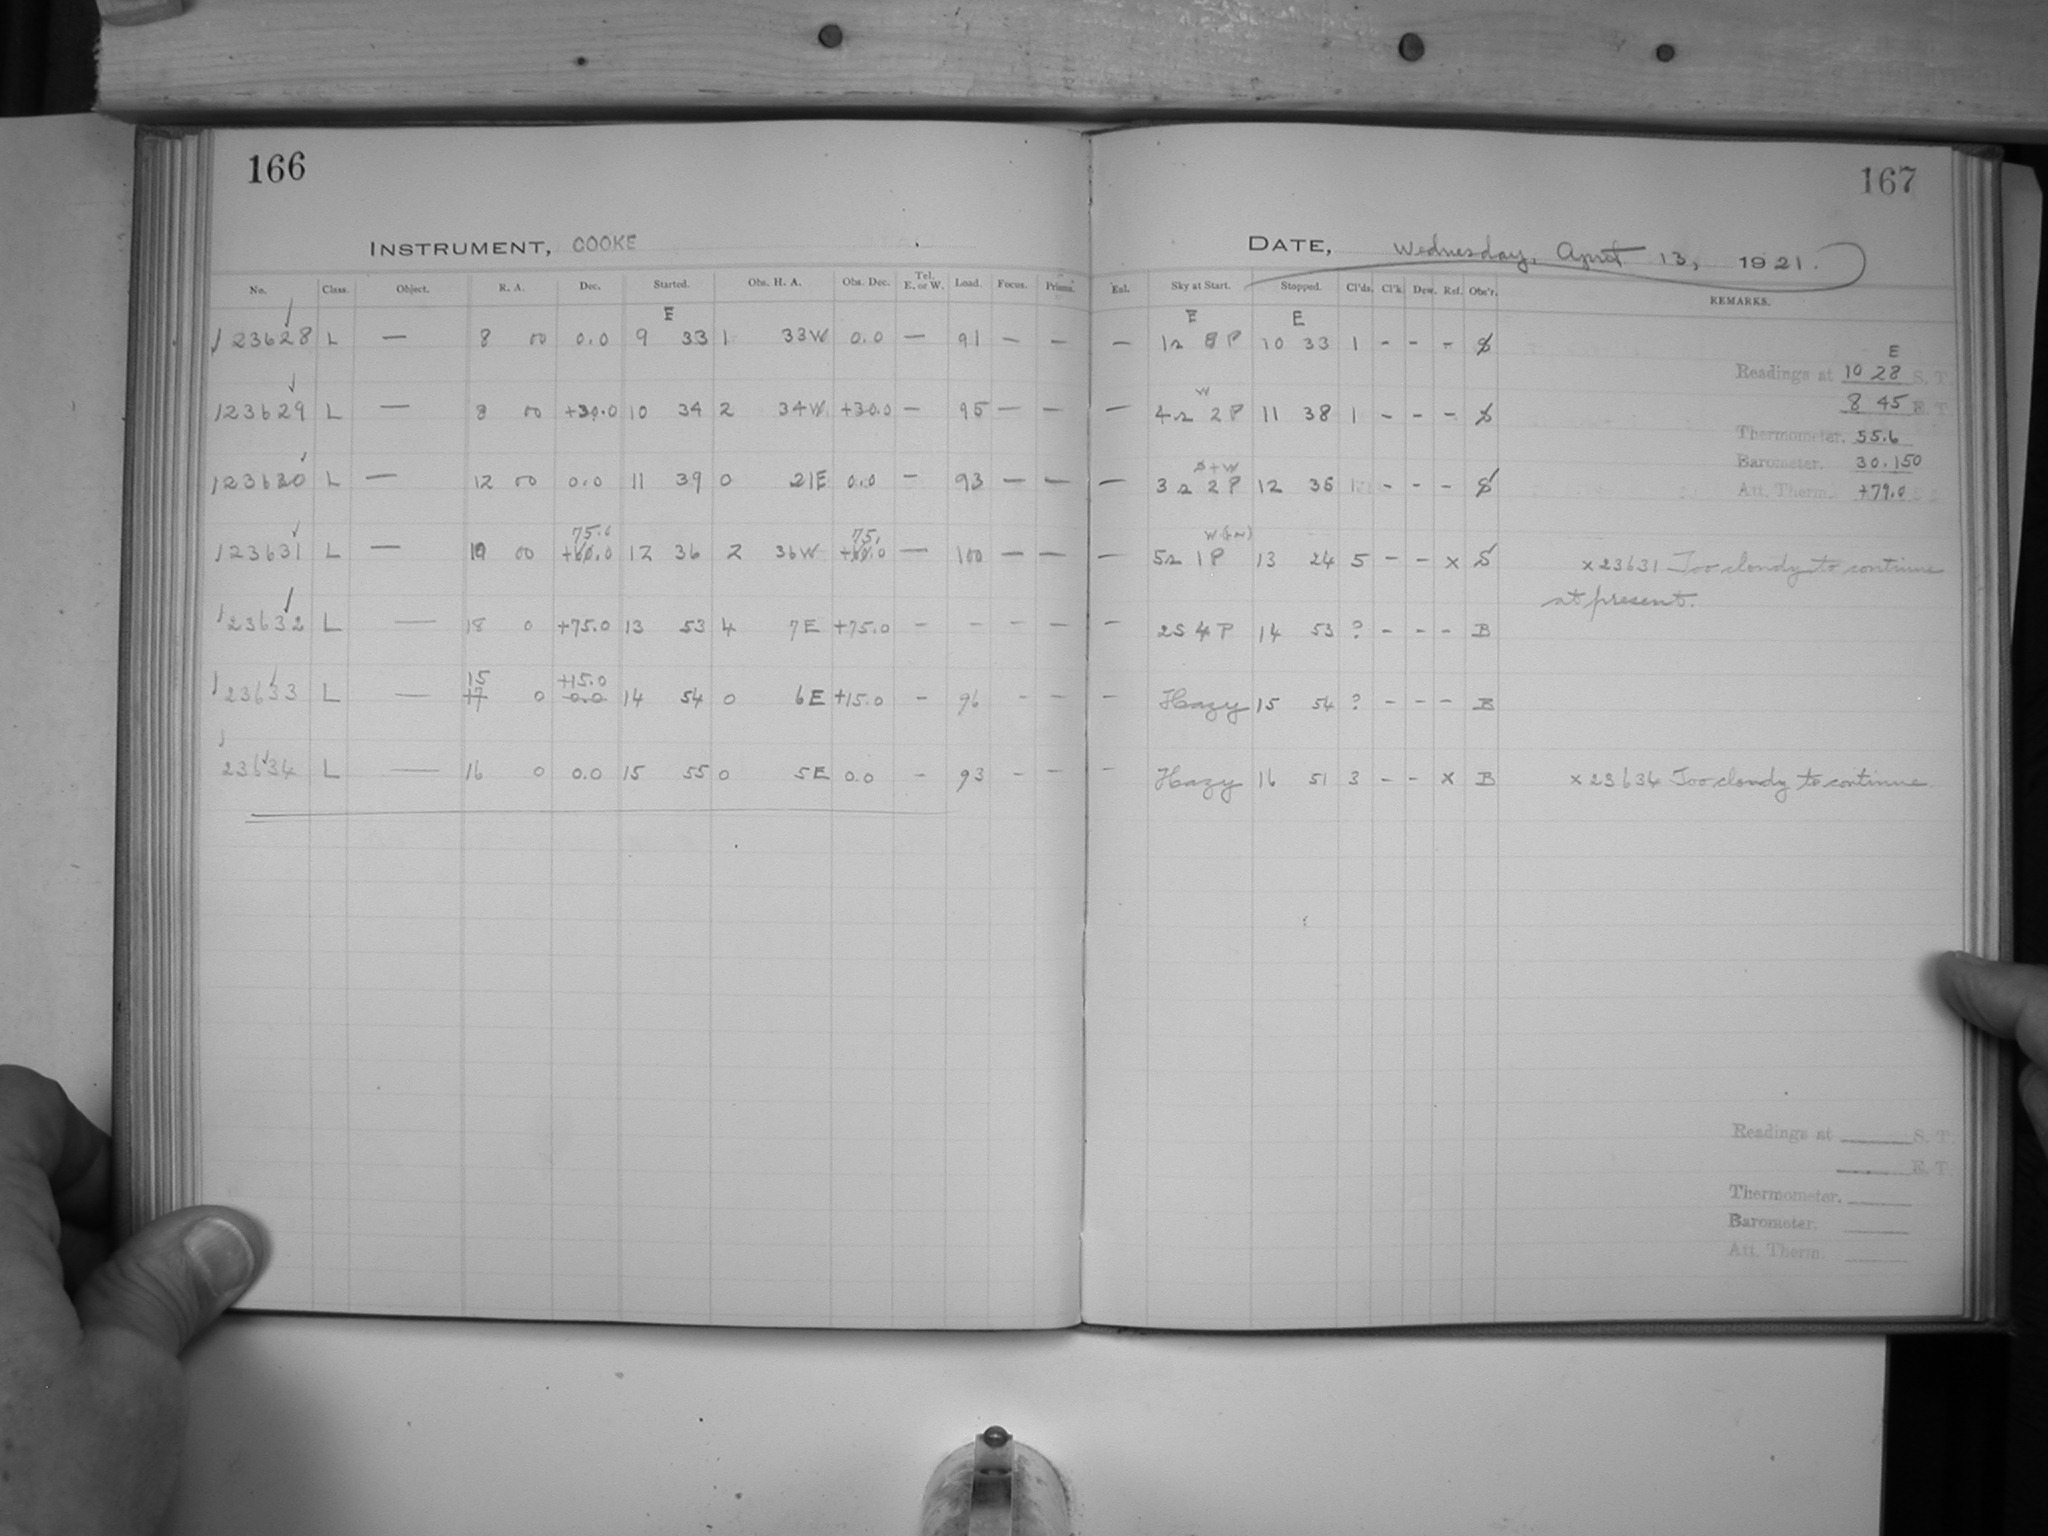 166
167
INSTRUMENT, COOKE
DATE, Wednesday, April 13, 1921.
No. Class. Object. R. A. Dec. Started. Obs. H. A. Obs. Dec. Tel. E. or W. Load. Focus. Prisms. Enl. Sky at Start. Stopped. Cl'ds. Cl'k. Dew. Ref. Obs'r. REMARKS.
E E E
23628 L — 8 00 0.0 9 33 1 33W 0.0 — 91 — — — 1s P 10 33 1 - - - S
W
23629 L — 8 00 +30.0 10 34 2 34W +30.0 — 95 — — — 4s 2P 11 38 1 - - - S
S+W
23630 L — 12 00 0.0 11 39 0 21E 0.0 - 93 — — — 3s 2P 12 36 - - - S
75.0 75. W(+N)
23631 L — 10 00 +60.0 12 36 2 36W +60.0 — 100 — — — 5s 1P 13 24 5 - - x S
23632 L — 18 0 +75.0 13 53 4 7E +75.0 - - - - - 2S 4P 14 53 ? - - - B
15 +15.0
23633 L — 17 0 0.0 14 54 0 6E +15.0 - 96 - - - Hazy 15 54 ? - - - B
23634 L — 16 0 0.0 15 55 0 5E 0.0 - 93 - - - Hazy 16 51 3 - - x B
E
Readings at 10 28 S. T.
8 45 E. T.
Thermometer, 55.6
Barometer, 30.150
Att. Therm. +79.0
x 23631 Too cloudy to continue
at present.
x 23634 Too cloudy to continue
Readings at S. T.
E. T.
Thermometer,
Barometer,
Att. Therm.